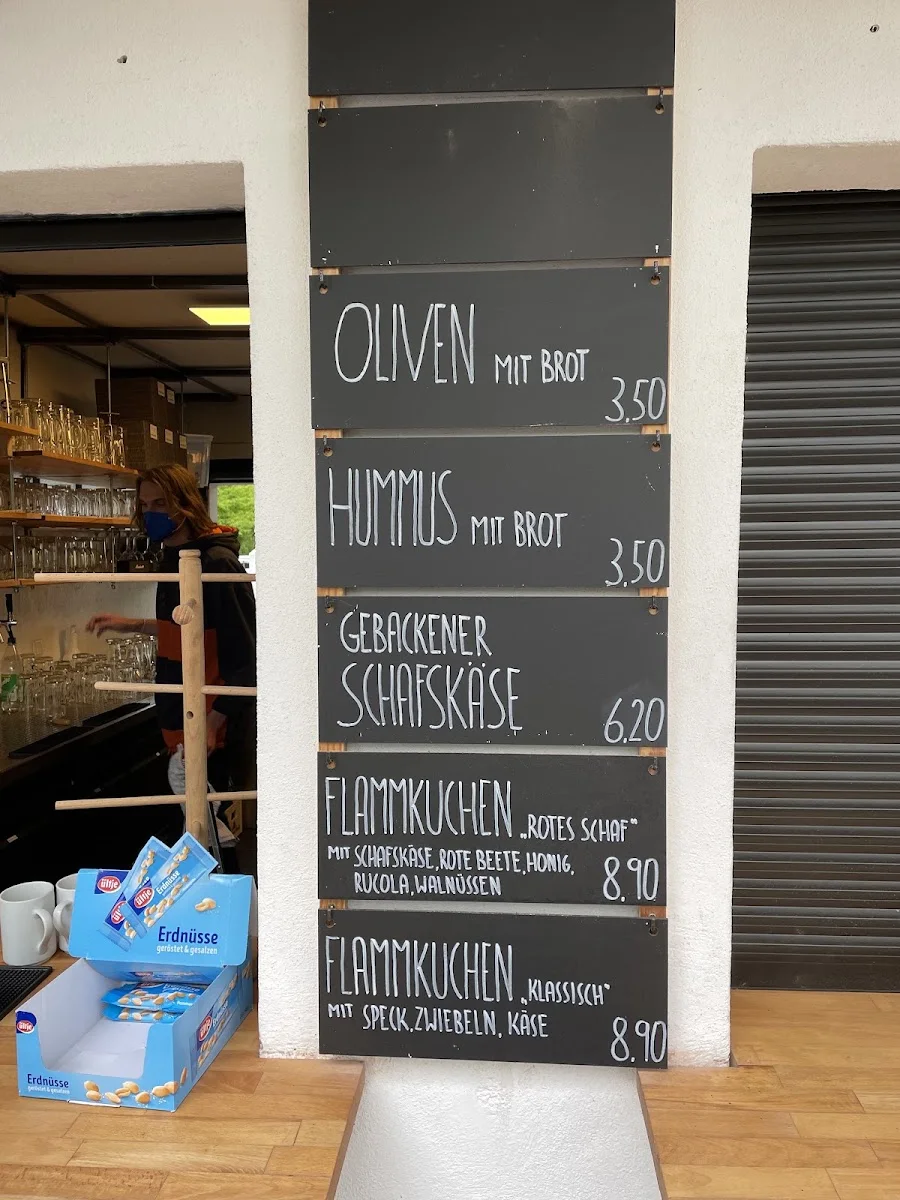 OLIVEN MIT BROT
3.50
HUMMUS MIT BROT
3.50
GEBACKENER
SCHAFSKÄSE
6.20
FLAMMKUCHEN „ROTES SCHAF"
MIT SCHAFSKÄSE, ROTE BEETE, HONIG,
RUCOLA, WALNÜSSEN
8.90
FLAMMKUCHEN „KLASSISCH"
MIT SPECK, ZWIEBELN, KÄSE
8.90
ültje
Erdnüsse
ültje
Erdnüsse
geröstet & gesalzen
ültje
ültje
Erdnüsse
geröstet & gesalzen